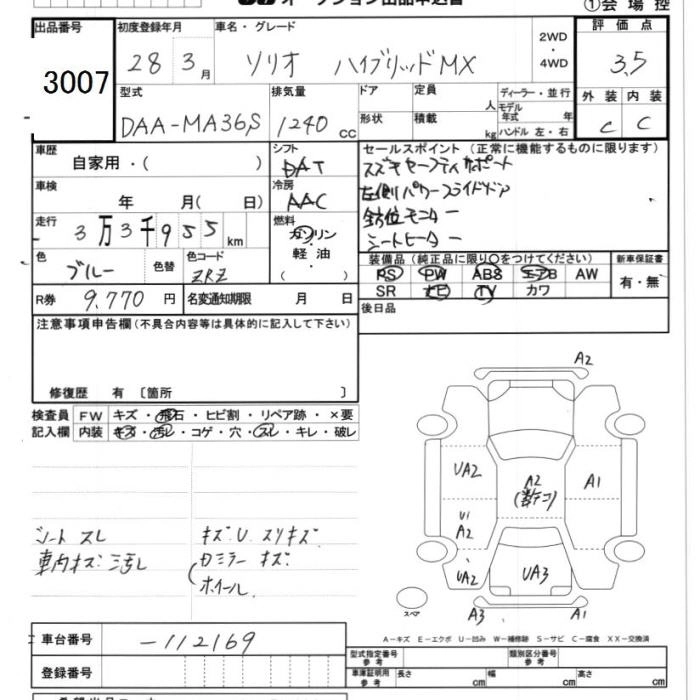 オークション出品申込書
①会場控
出品番号 3007
初度登録年月 28 3月
車名・グレード ソリオ ハイブリッドMX
2WD・4WD
評価点 3.5
外装 内装
C C
型式 DAA-MA36S
排気量 1240 cc
ドア
形状
定員 人
積載 kg
ディーラー・並行
モデル年式 年
ハンドル 左・右
車歴 自家用・( )
シフト DAT
車検 年 月( 日)
冷房 AAC
走行 3万3千955km
燃料 ガソリン・軽油・( )
色 ブルー 色替
色コード ZRZ
R券 9,770円
名変通知期限 月 日
セールスポイント(正常に機能するものに限ります)
スズキセーフティサポート
左側パワースライドドア
全方位モニター
シートヒーター
装備品(純正品に限り○をつけてください)
PS PW ABS エアB AW
SR ナビ TV カワ
新車保証書
有・無
後日品
注意事項申告欄(不具合内容等は具体的に記入して下さい)
修復歴 有 〔箇所 〕
検査員記入欄
FW キズ・飛石・ヒビ割・リペア跡・×要
内装 キズ・汚レ・コゲ・穴・スレ・キレ・破レ
シートスレ
車内キズ 汚レ
キズU スリキズ
ミラーキズ
ホイール
A2
UA2
A2
A1
U1
A2
UA2
UA3
スペア
A3
A1
A-キズ E-エクボ U-凹み W-補修跡 S-サビ C-腐食 XX-交換済
車台番号 -112169
登録番号
型式指定番号 参考
類別区分番号 参考
車庫証明用 参考
長さ cm
幅 cm
高さ cm